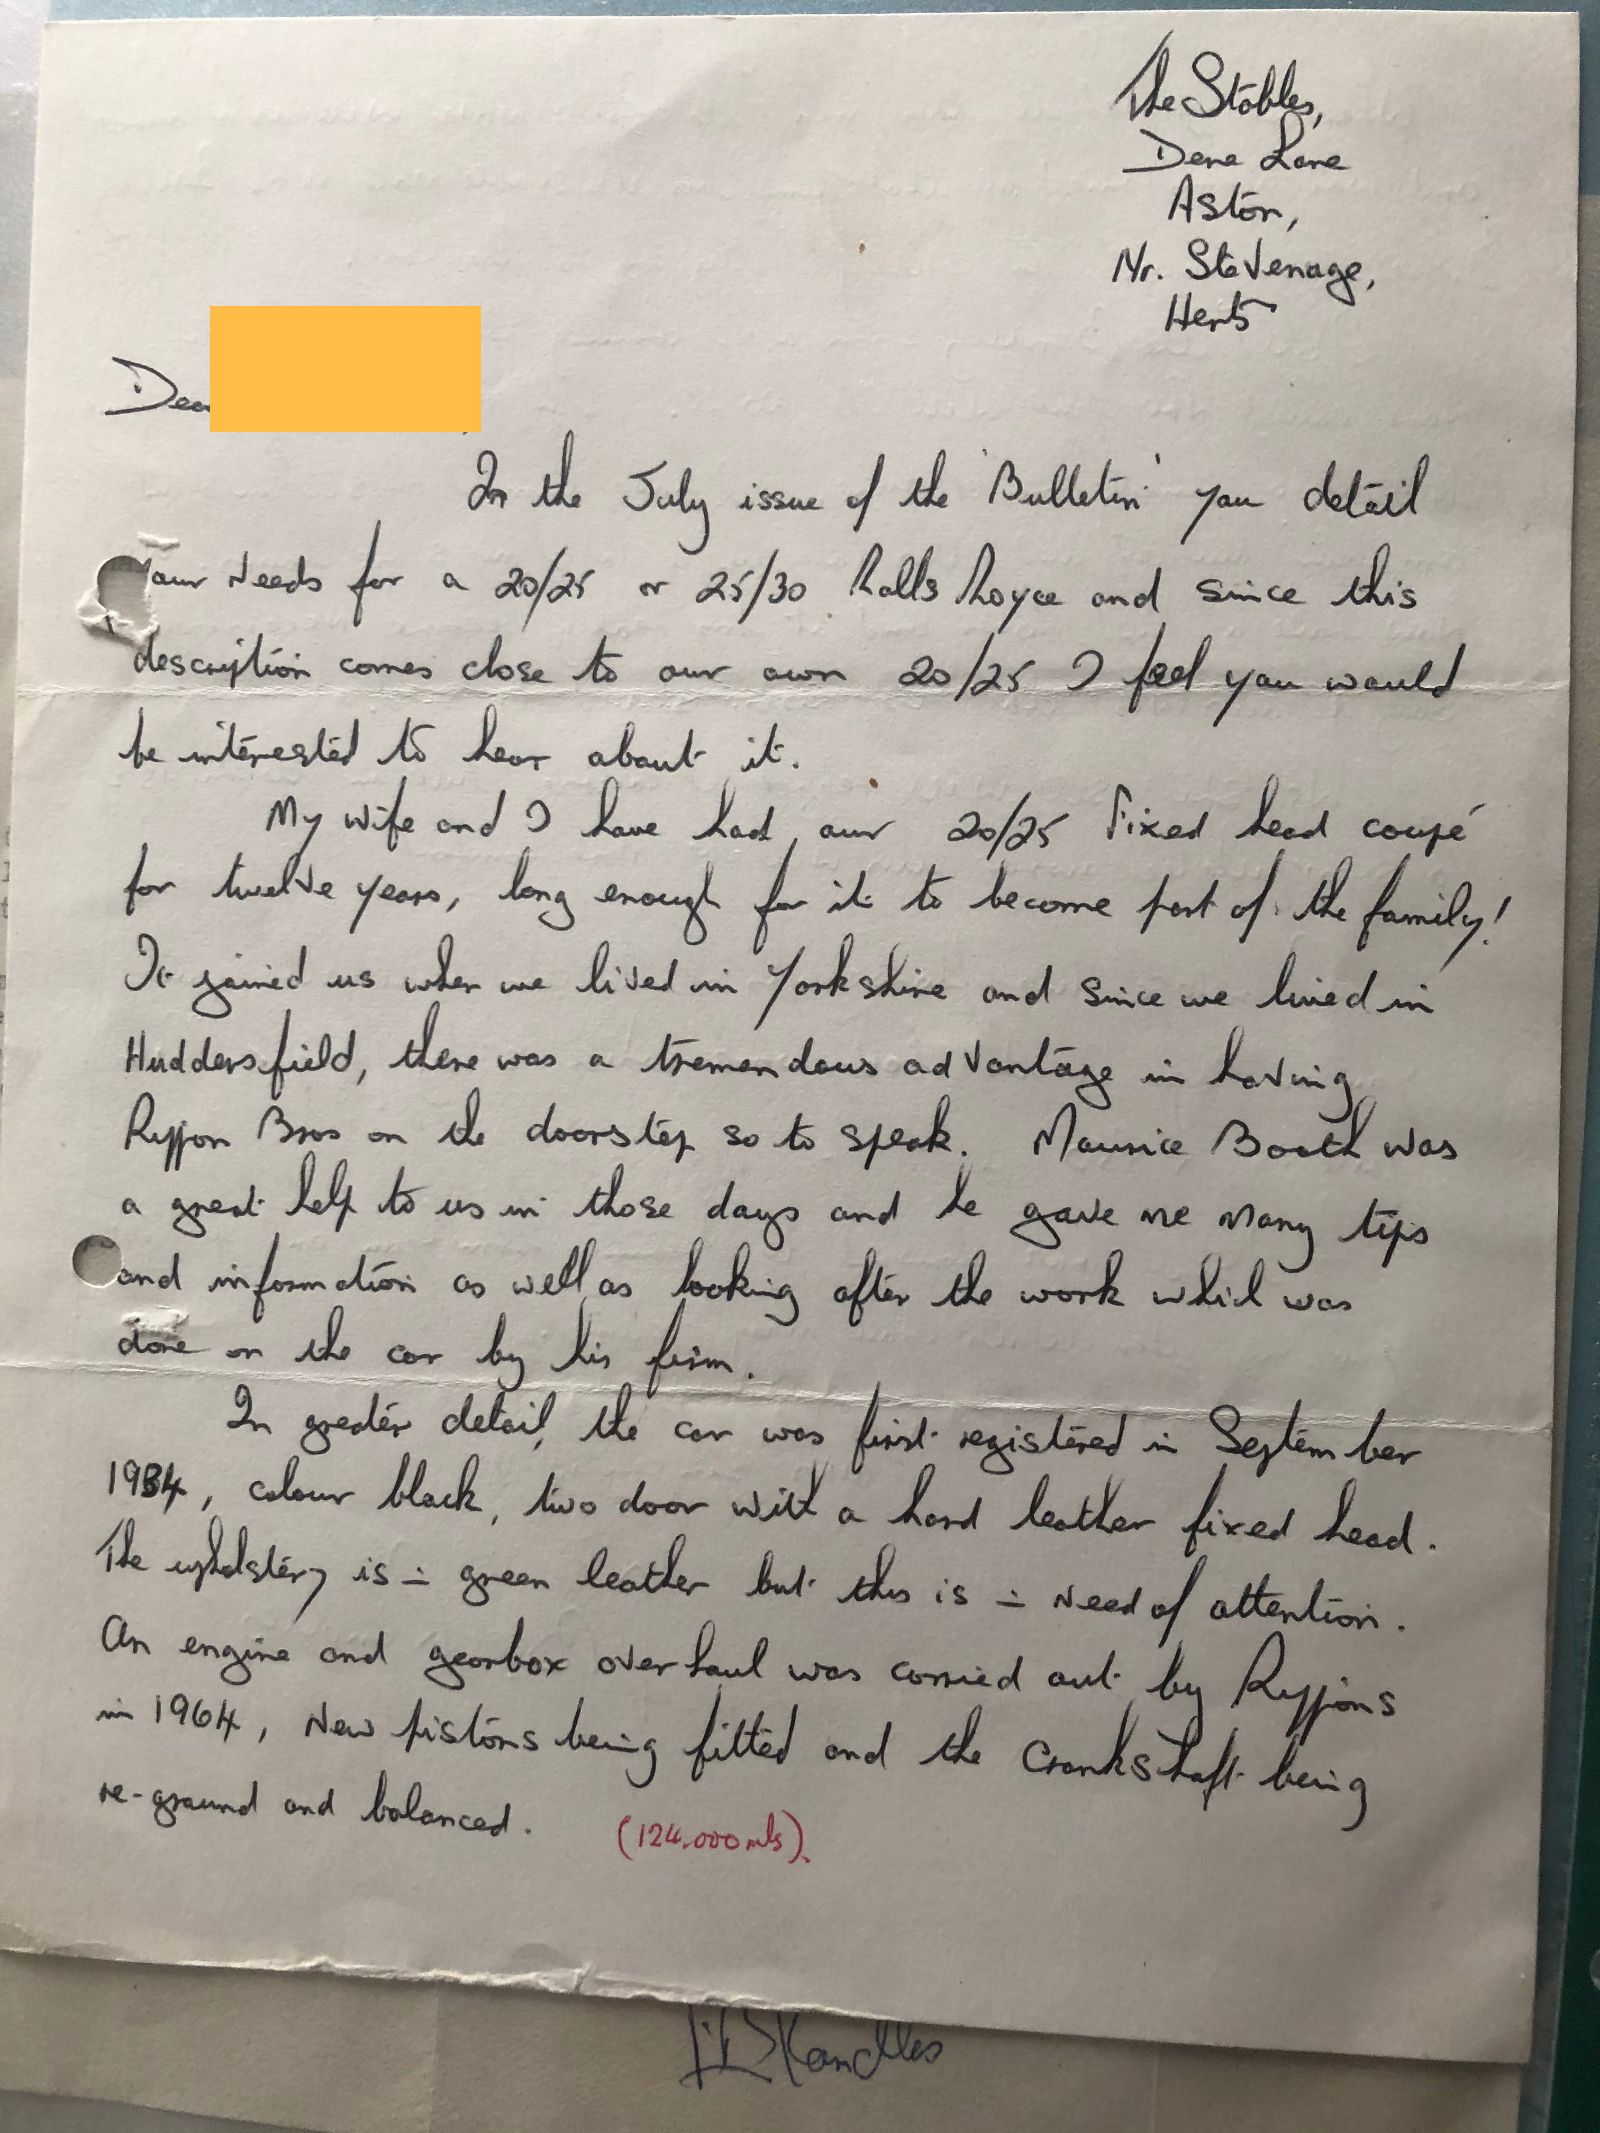 The Stables,
Dene Lane
Aston,
Nr. Stevenage,
Herts
Dear
In the July issue of the 'Bulletin' you detail
your needs for a 20/25 or 25/30 Rolls Royce and since this
description comes close to our own 20/25 I feel you would
be interested to hear about it.
My wife and I have had our 20/25 Fixed head coupé
for twelve years, long enough for it to become part of the family!
It joined us when we lived in Yorkshire and since we lived in
Huddersfield, there was a tremendous advantage in having
Rippon Bros on the doorstep so to speak. Maurice Booth was
a great help to us in those days and he gave me many tips
and information as well as looking after the work which was
done on the car by his firm.
In greater detail, the car was first registered in September
1934, colour black, two door with a hard leather fixed head.
The upholstery is in green leather but this is in need of attention.
An engine and gearbox overhaul was carried out by Rippons
in 1964, new pistons being fitted and the crankshaft being
re-ground and balanced. (124.000 mls).